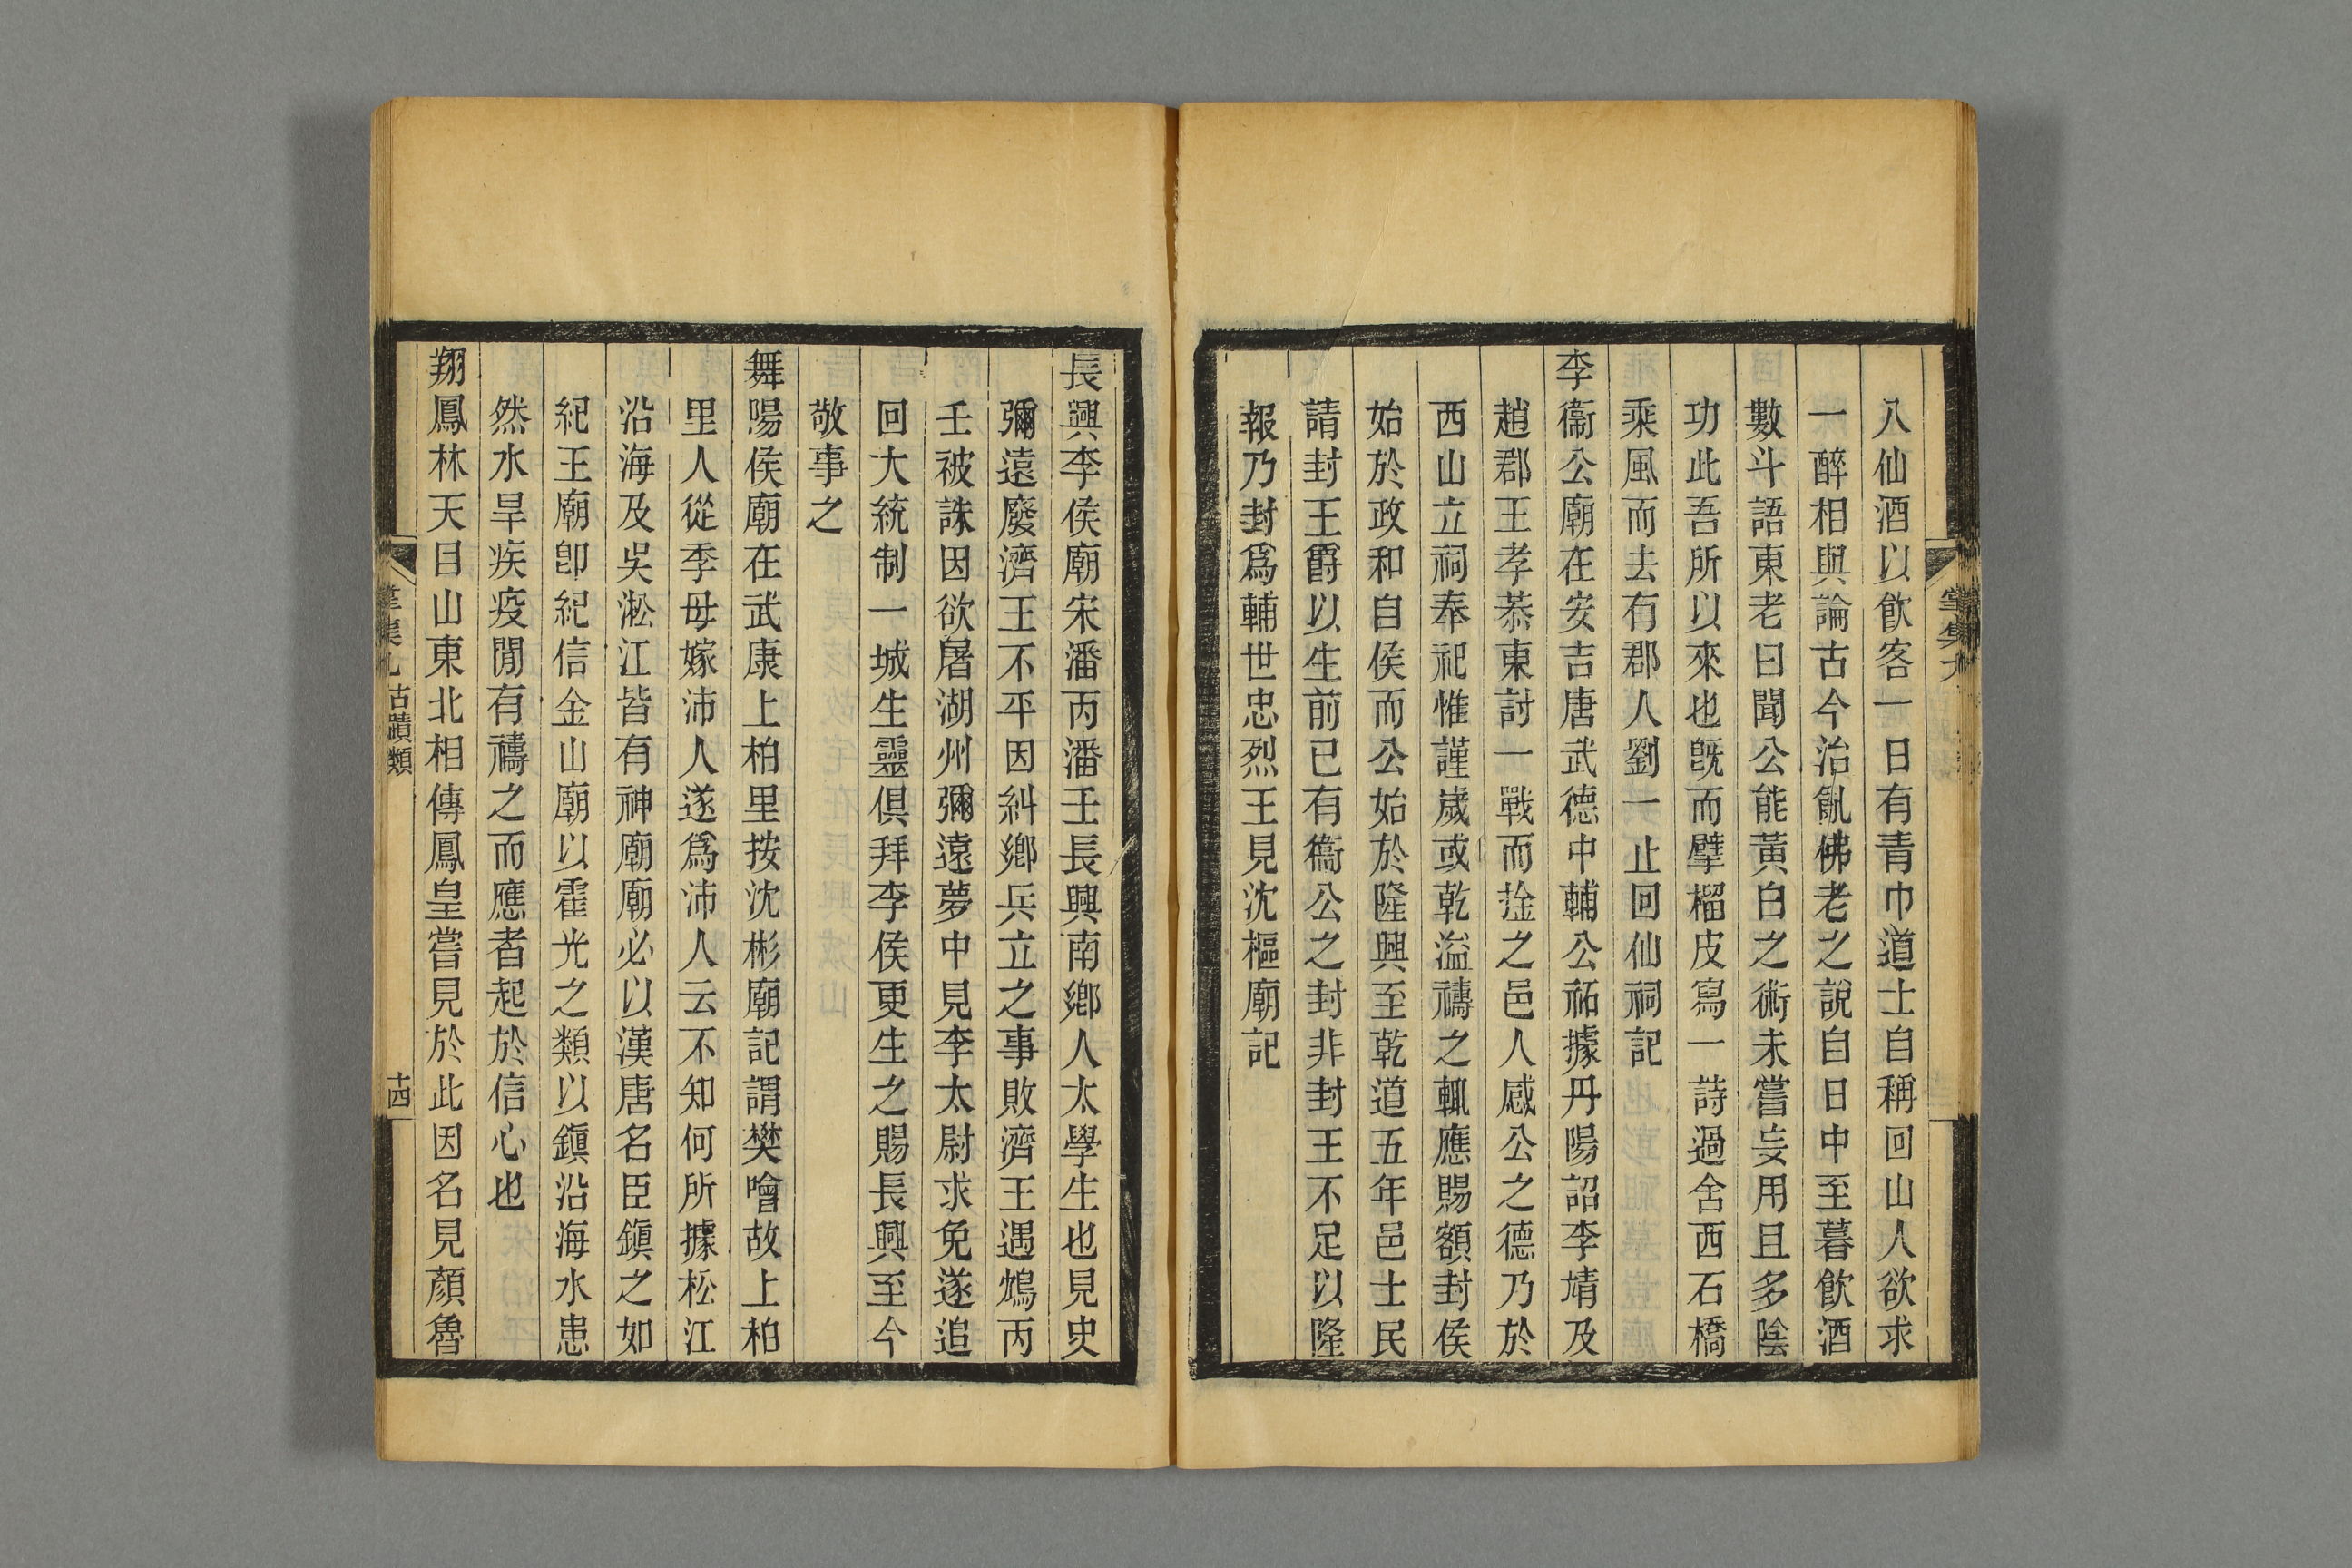 八仙酒以飮客一日有青巾道士自稱回山人欲求
一醉相與論古今治亂佛老之說自日中至暮飮酒
數斗語東老曰聞公能黃白之術未嘗妄用且多陰
功此吾所以來也旣而擘榴皮寫一詩過舍西石橋
乘風而去有郡人劉一止回仙祠記
李衞公廟在安吉唐武德中輔公祏據丹陽詔李靖及
趙郡王孝恭東討一戰而擒之邑人感公之德乃於
西山立祠奉祀惟謹歲或乾溢禱之輒應賜額封侯
始於政和自侯而公始於隆興至乾道五年邑士民
請封王爵以生前已有衞公之封非封王不足以隆
報乃封爲輔世忠烈王見沈樞廟記
長興李侯廟宋潘丙潘壬長興南鄉人太學生也見史
彌遠廢濟王不平因糾鄉兵立之事敗濟王遇鴆丙
壬被誅因欲屠湖州彌遠夢中見李太尉求免遂追
回大統制一城生靈俱拜李侯更生之賜長興至今
敬事之
舞陽侯廟在武康上柏里按沈彬廟記謂樊噲故上柏
里人從季母嫁沛人遂爲沛人云不知何所據松江
沿海及吳淞江皆有神廟廟必以漢唐名臣鎭之如
紀王廟卽紀信金山廟以霍光之類以鎭沿海水患
然水旱疾疫間有禱之而應者起於信心也
翔鳳林天目山東北相傳鳳皇嘗見於此因名見顏魯
古蹟類
十四